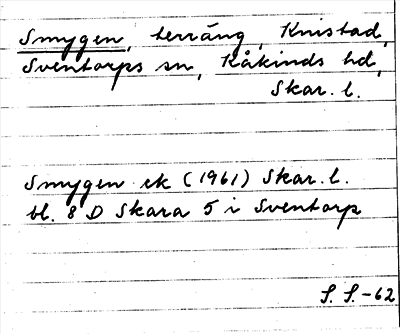 Smygen, terräng, Knistad,
Sventorps sn, Kåkinds hd,
Skar. l.
Smygen ek (1961) Skar. l.
bl. 8 D Skara 5 i Sventorp
S. S. -62